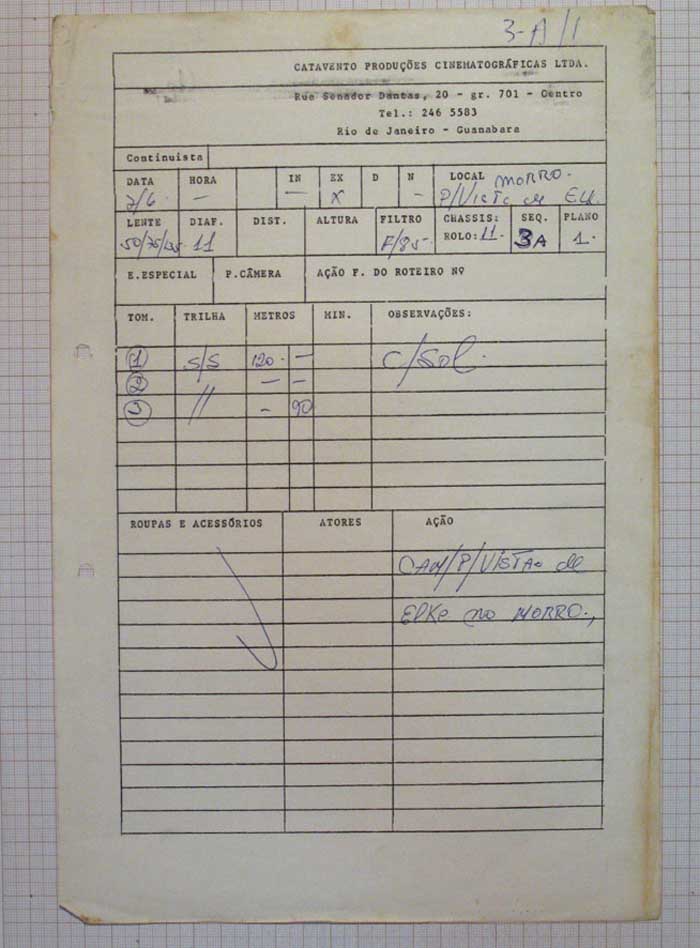 3-A/1
CATAVENTO PRODUÇÕES CINEMATOGRÁFICAS LTDA.
Rua Senador Dantas, 20 - gr. 701 - Centro
Tel.: 246 5583
Rio de Janeiro - Guanabara
Continuista
DATA HORA IN EX D N LOCAL MORRO.
— — X - P/Vista de
LENTE DIAF. DIST. ALTURA FILTRO CHASSIS: SEQ. PLANO
50/75/ 11 F/85- ROLO: 11. 3A 1.
E.ESPECIAL P.CÂMERA AÇÃO F. DO ROTEIRO Nº
TOM. TRILHA METROS MIN. OBSERVAÇÕES:
1 S/S 120. — C/Sol.
2 — —
3 // - 90
ROUPAS E ACESSÓRIOS ATORES AÇÃO
CAM/P/VISTA de
ELKE no MORRO.,